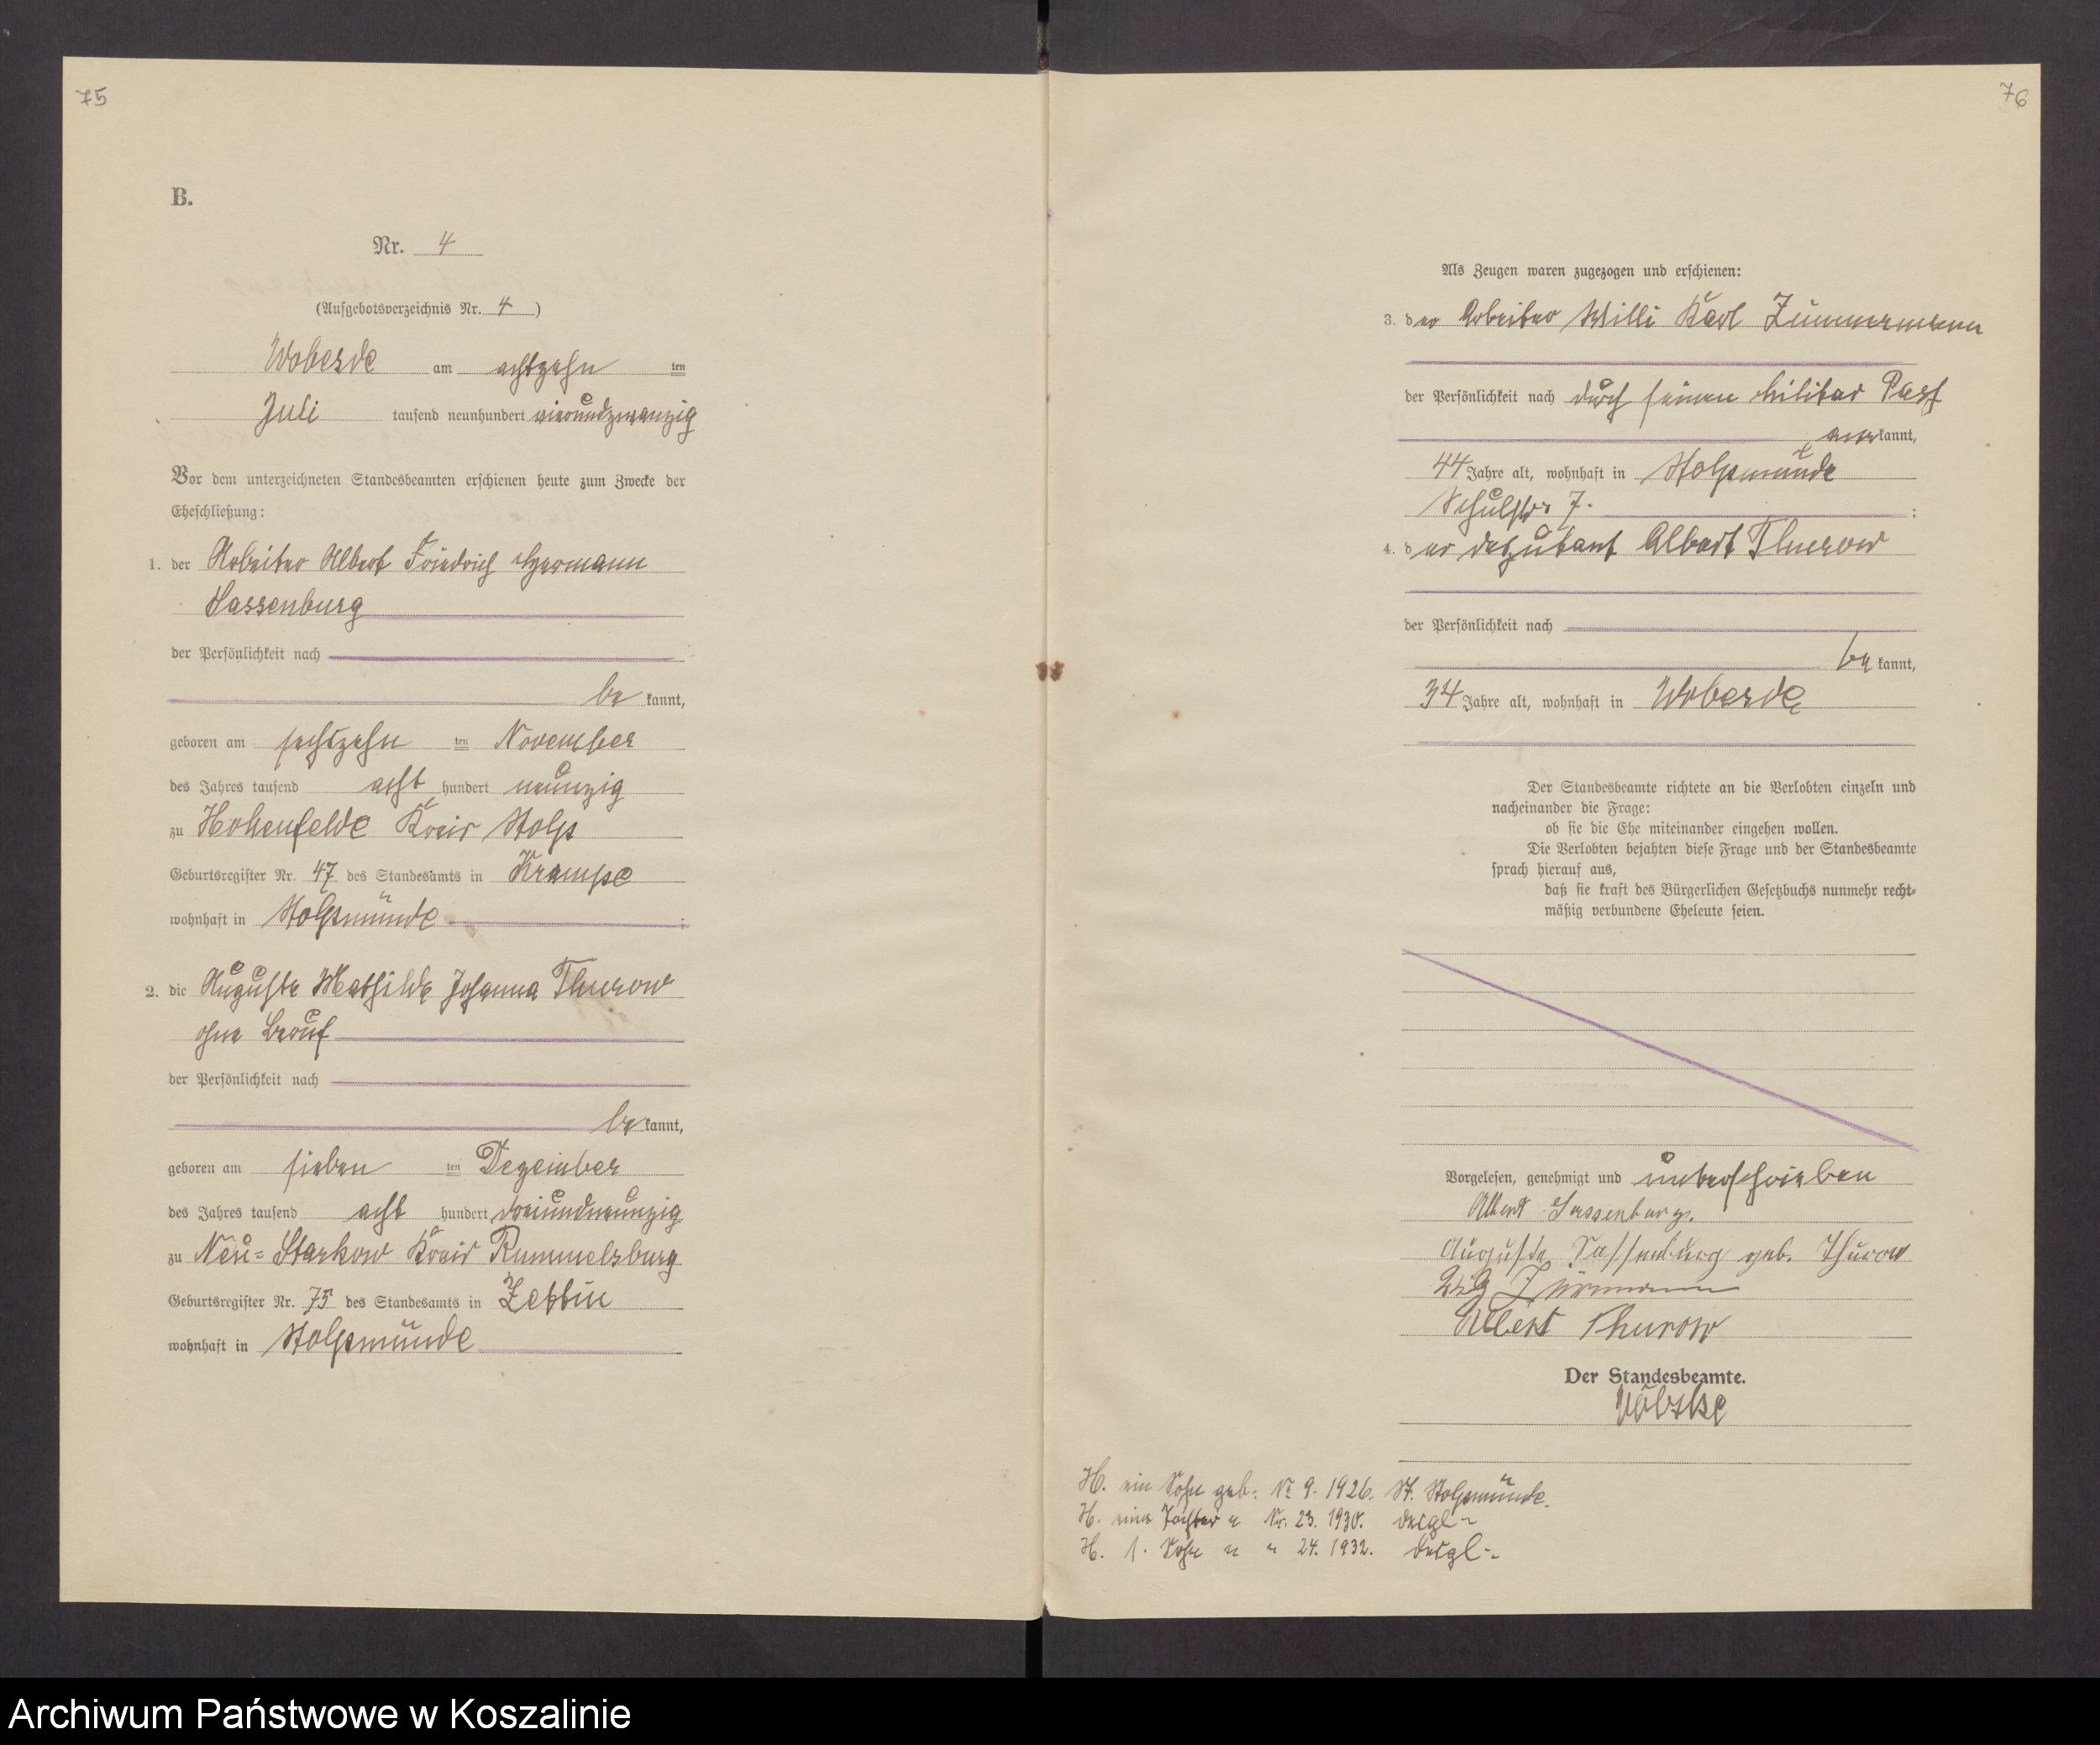 75
B.
Nr. 4
(Aufgebotsverzeichnis Nr. 4)
Wobesde am achtzehn ten
Juli tausend neunhundert vierundzwanzig
Vor dem unterzeichneten Standesbeamten erschienen heute zum Zwecke der
Eheschließung:
1. der Arbeiter Albert Friedrich Hermann
Sassenburg
der Persönlichkeit nach
be kannt,
geboren am sechszehn ten November
des Jahres tausend acht hundert neunzig
zu Hohenfelde Kreis Stolp
Geburtsregister Nr. 47 des Standesamts in Krampe
wohnhaft in Stolpmünde ;
2. die Auguste Mathilde Johanna Thurow
ohne Beruf
der Persönlichkeit nach
be kannt,
geboren am sieben ten Dezember
des Jahres tausend acht hundert dreiundneunzig
zu Neu-Starkow Kreis Rummelsburg
Geburtsregister Nr. 75 des Standesamts in Zettin
wohnhaft in Stolpmünde
76
Als Zeugen waren zugezogen und erschienen:
3. der Arbeiter Willi Karl Zimmermann
der Persönlichkeit nach durch seinen Militar Pass
aner kannt,
44 Jahre alt, wohnhaft in Stolpmünde
Schulstr 7. ;
4. der Deputant Albert Thurow
der Persönlichkeit nach
be kannt,
34 Jahre alt, wohnhaft in Wobesde
Der Standesbeamte richtete an die Verlobten einzeln und
nacheinander die Frage:
ob sie die Ehe miteinander eingehen wollen.
Die Verlobten bejahten diese Frage und der Standesbeamte
sprach hierauf aus,
daß sie kraft des Bürgerlichen Gesetzbuchs nunmehr recht-
mäßig verbundene Eheleute seien.
Vorgelesen, genehmigt und unterschrieben
Albert Sassenburg.
Auguste Sassenburg geb. Thurow
Albert Thurow
Der Standesbeamte.
H. ein Sohn geb. Nr 9. 1926. St. Stolpmünde.
H. eine Tochter " Nr. 23. 1930. desgl-
H. 1. Sohn " " 24. 1932. desgl-
Archiwum Państwowe w Koszalinie